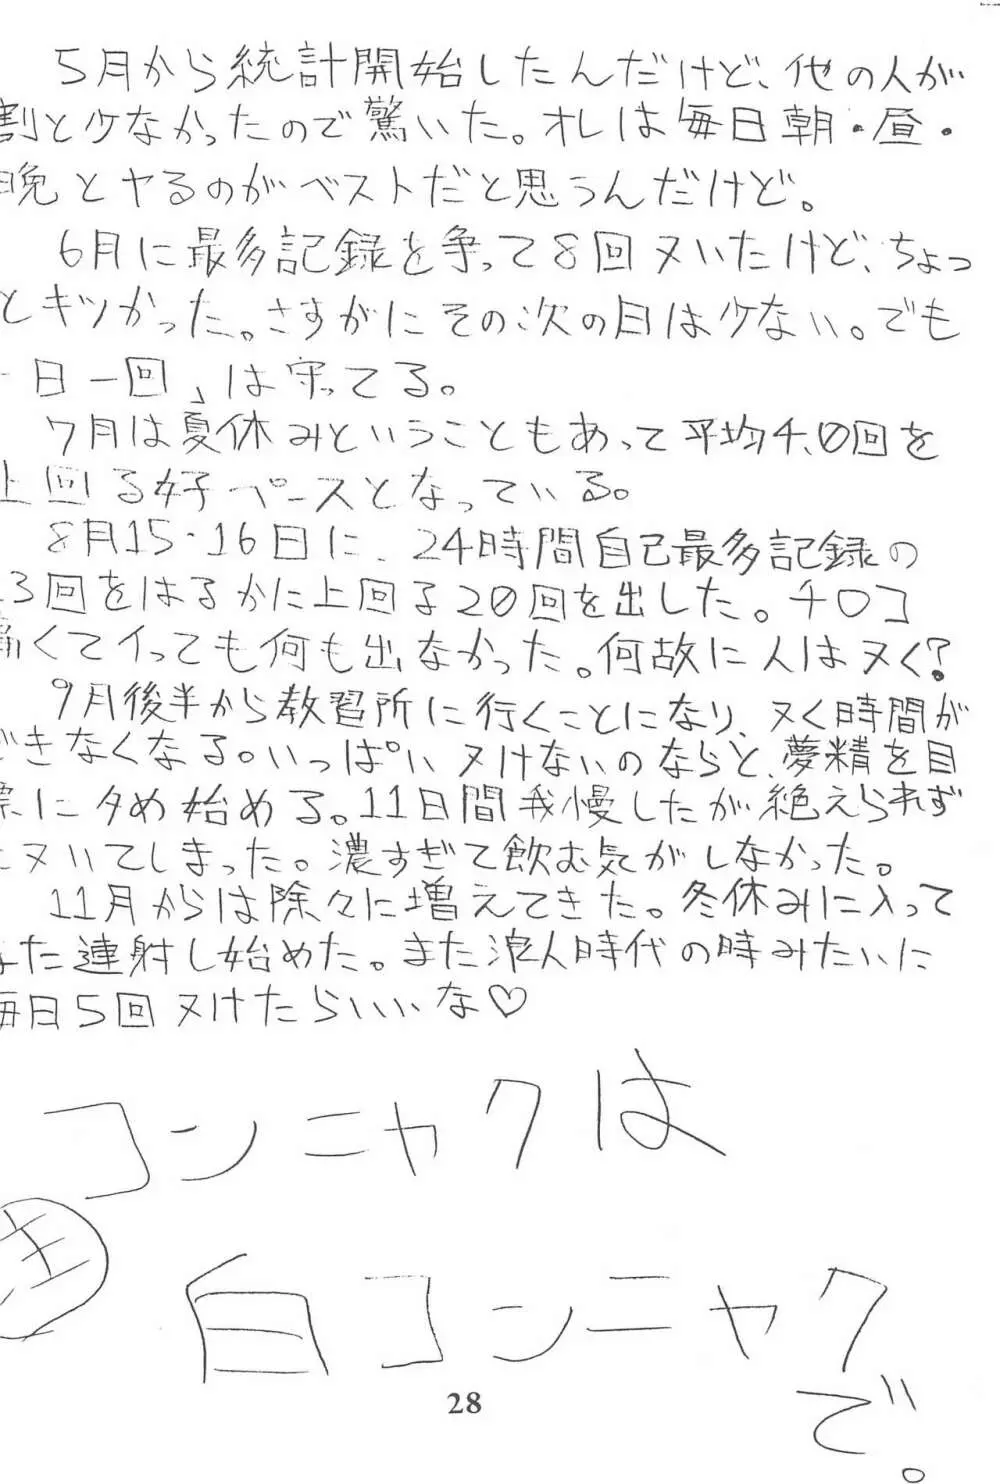 5月から統計開始したんだけど、他の人が
割と少なかったので驚いた。オレは毎日朝・昼・
晩とヤるのがベストだと思うんだけど。
6月に最多記録を争って8回ヌいたけど、ちょっ
とキツかった。さすがにその次の日は少ない。でも
日一回」は守ってる。
7月は夏休みということもあって平均4.0回を
上回る好ペースとなっている。
8月15・16日に、24時間自己最多記録の
3回をはるかに上回る20回を出した。チ〇コ
痛くてイっても何も出なかった。何故に人はヌく?
9月後半から教習所に行くことになり、ヌく時間が
できなくなる。いっぱいヌけないのならと、夢精を目
標にタめ始める。11日間我慢したが絶えられず
にヌいてしまった。濃すぎて飲む気がしなかった。
11月からは除々に増えてきた。冬休みに入って
また連射し始めた。また浪人時代の時みたいに
毎日5回ヌけたらいいな♡
コンニャクは
生
白コンニャク
で。
28